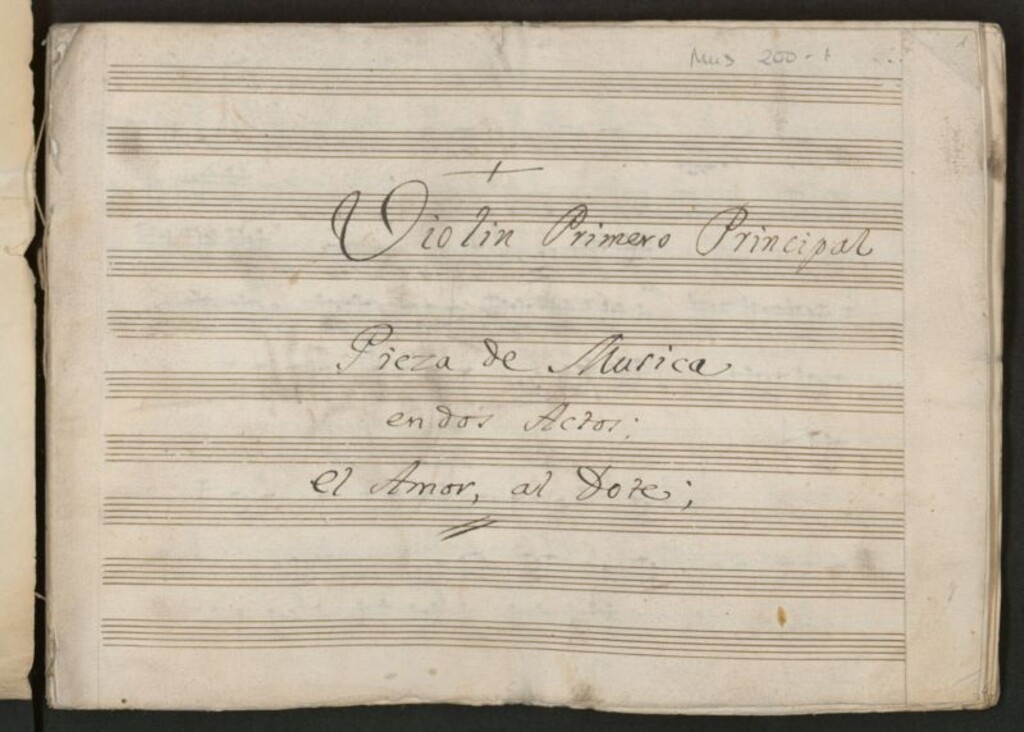 Mus 200-1
1
+
Violin Primero Principal
Pieza de Musica
en dos Actos;
el Amor, al Dote;